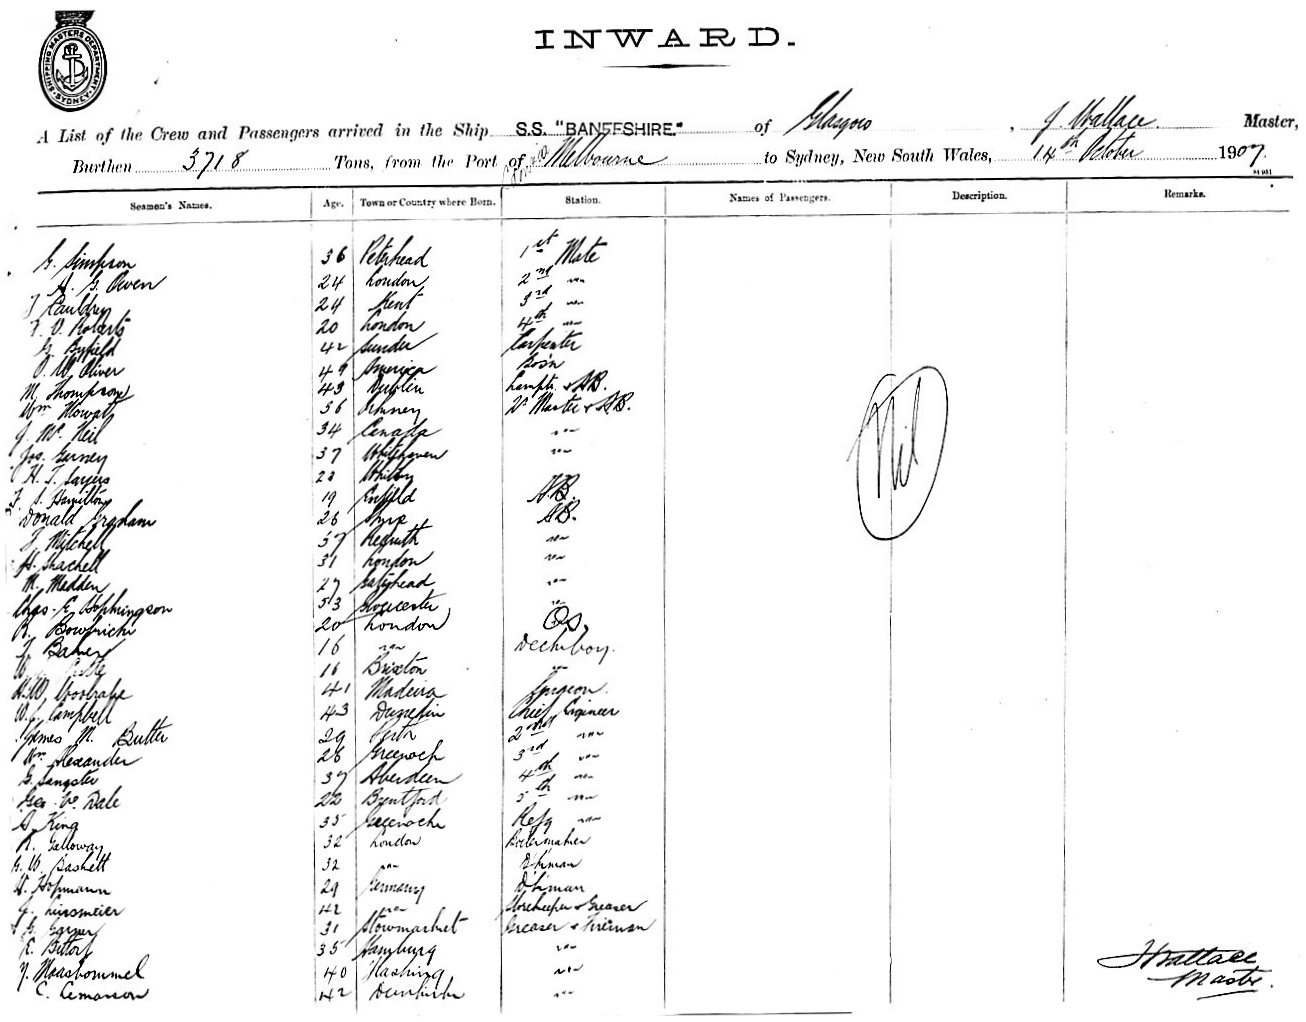 SHIPPING MASTERS DEPARTMENT SYDNEY
INWARD.
A List of the Crew and Passengers arrived in the Ship S.S. "BANFFSHIRE." of Glasgow, J. Wallace. Master,
Burthen 3718 Tons, from the Port of Melbourne to Sydney, New South Wales, 14th October 1907.
Seamen's Names. Age. Town or Country where Born. Station. Names of Passengers. Description. Remarks.
G. Simpson 36 Peterhead 1st Mate
A. G. Owen 24 London 2nd "
Cauldrey 24 Kent 3rd "
V. Roberts 20 London 4th "
G. Byfield 42 Sunder Carpenter
O. W. Oliver 49 America Bosn
M. Thompson 43 Dublin Lamps & AB.
Wm Mowatt 56 Orkney Master & AB.
J. Mc Neil 34 Canada "
Jos. Gurney 37 Whitehaven "
H. T. Sayers Whitby
F. S. Hamilton 19 Enfield AB.
Donald Graham 26 Skye AB.
J. Mitchell 37 Redruth "
H. Shachell 31 London "
M. Madden 27 Gateshead "
Chas. E. Hopkingson 53 Gloucester "
R. 20 London OS.
Baker 16 " Deckboy.
16 Brixton "
H. W. 41 Madeira Surgeon.
W. C. Campbell 43 Dunedin Chief Engineer
James M. Butter 29 Perth 2nd "
Wm Alexander 26 Greenock 3rd "
G. Sangster 37 Aberdeen 4th "
Geo. W. Dale 22 Brentford 5th "
A. King 35 Greenock Refg "
R. Galloway 32 London Boilermaker
G. W. Baskett 32 " D'kman
H. Hopmann 29 Germany D'kman
J. Linsmeier 42 " Storekeeper & Greaser
G. Garner 31 Stowmarket Greaser & Fireman
E. Bittorf 35 Hamburg "
Y. Haasbommel 40 "
C. Lemarson 42 Dunkirk "
Nil
J Wallace
Master.